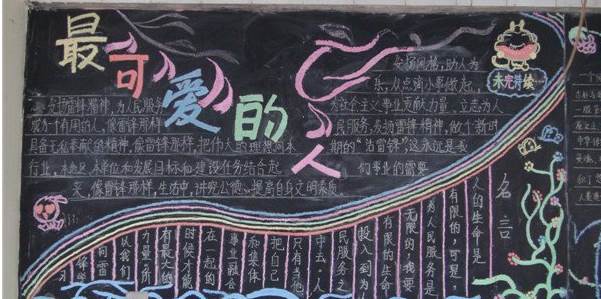 最可爱的人
学习雷锋精神，为人民服务
做为一个有用的人，像雷锋那样
具备无私奉献的精神，像雷锋那样，把伟大的理想同本
行业，本地区，本单位和发展目标和建设任务结合起
来，像雷锋那样，生活中，讲究公德，提高自身文明素质，
助人为
乐，从点滴小事做起，
为社会主义事业贡献力量，立志为人
民服务，发扬雷锋精神，做个新时
期的“活雷锋”，这永远是我
们的事业的需要
未完待续…
名言
人的生命是
有限的，可是，
为人民服务是
无限的，我要
把有限的生命
投入到为人
民服务之
中去。人
只有当他
把自己
和集体
事业融合
在一起的
时候才能
有最大的
力量，所
以我们
向雷